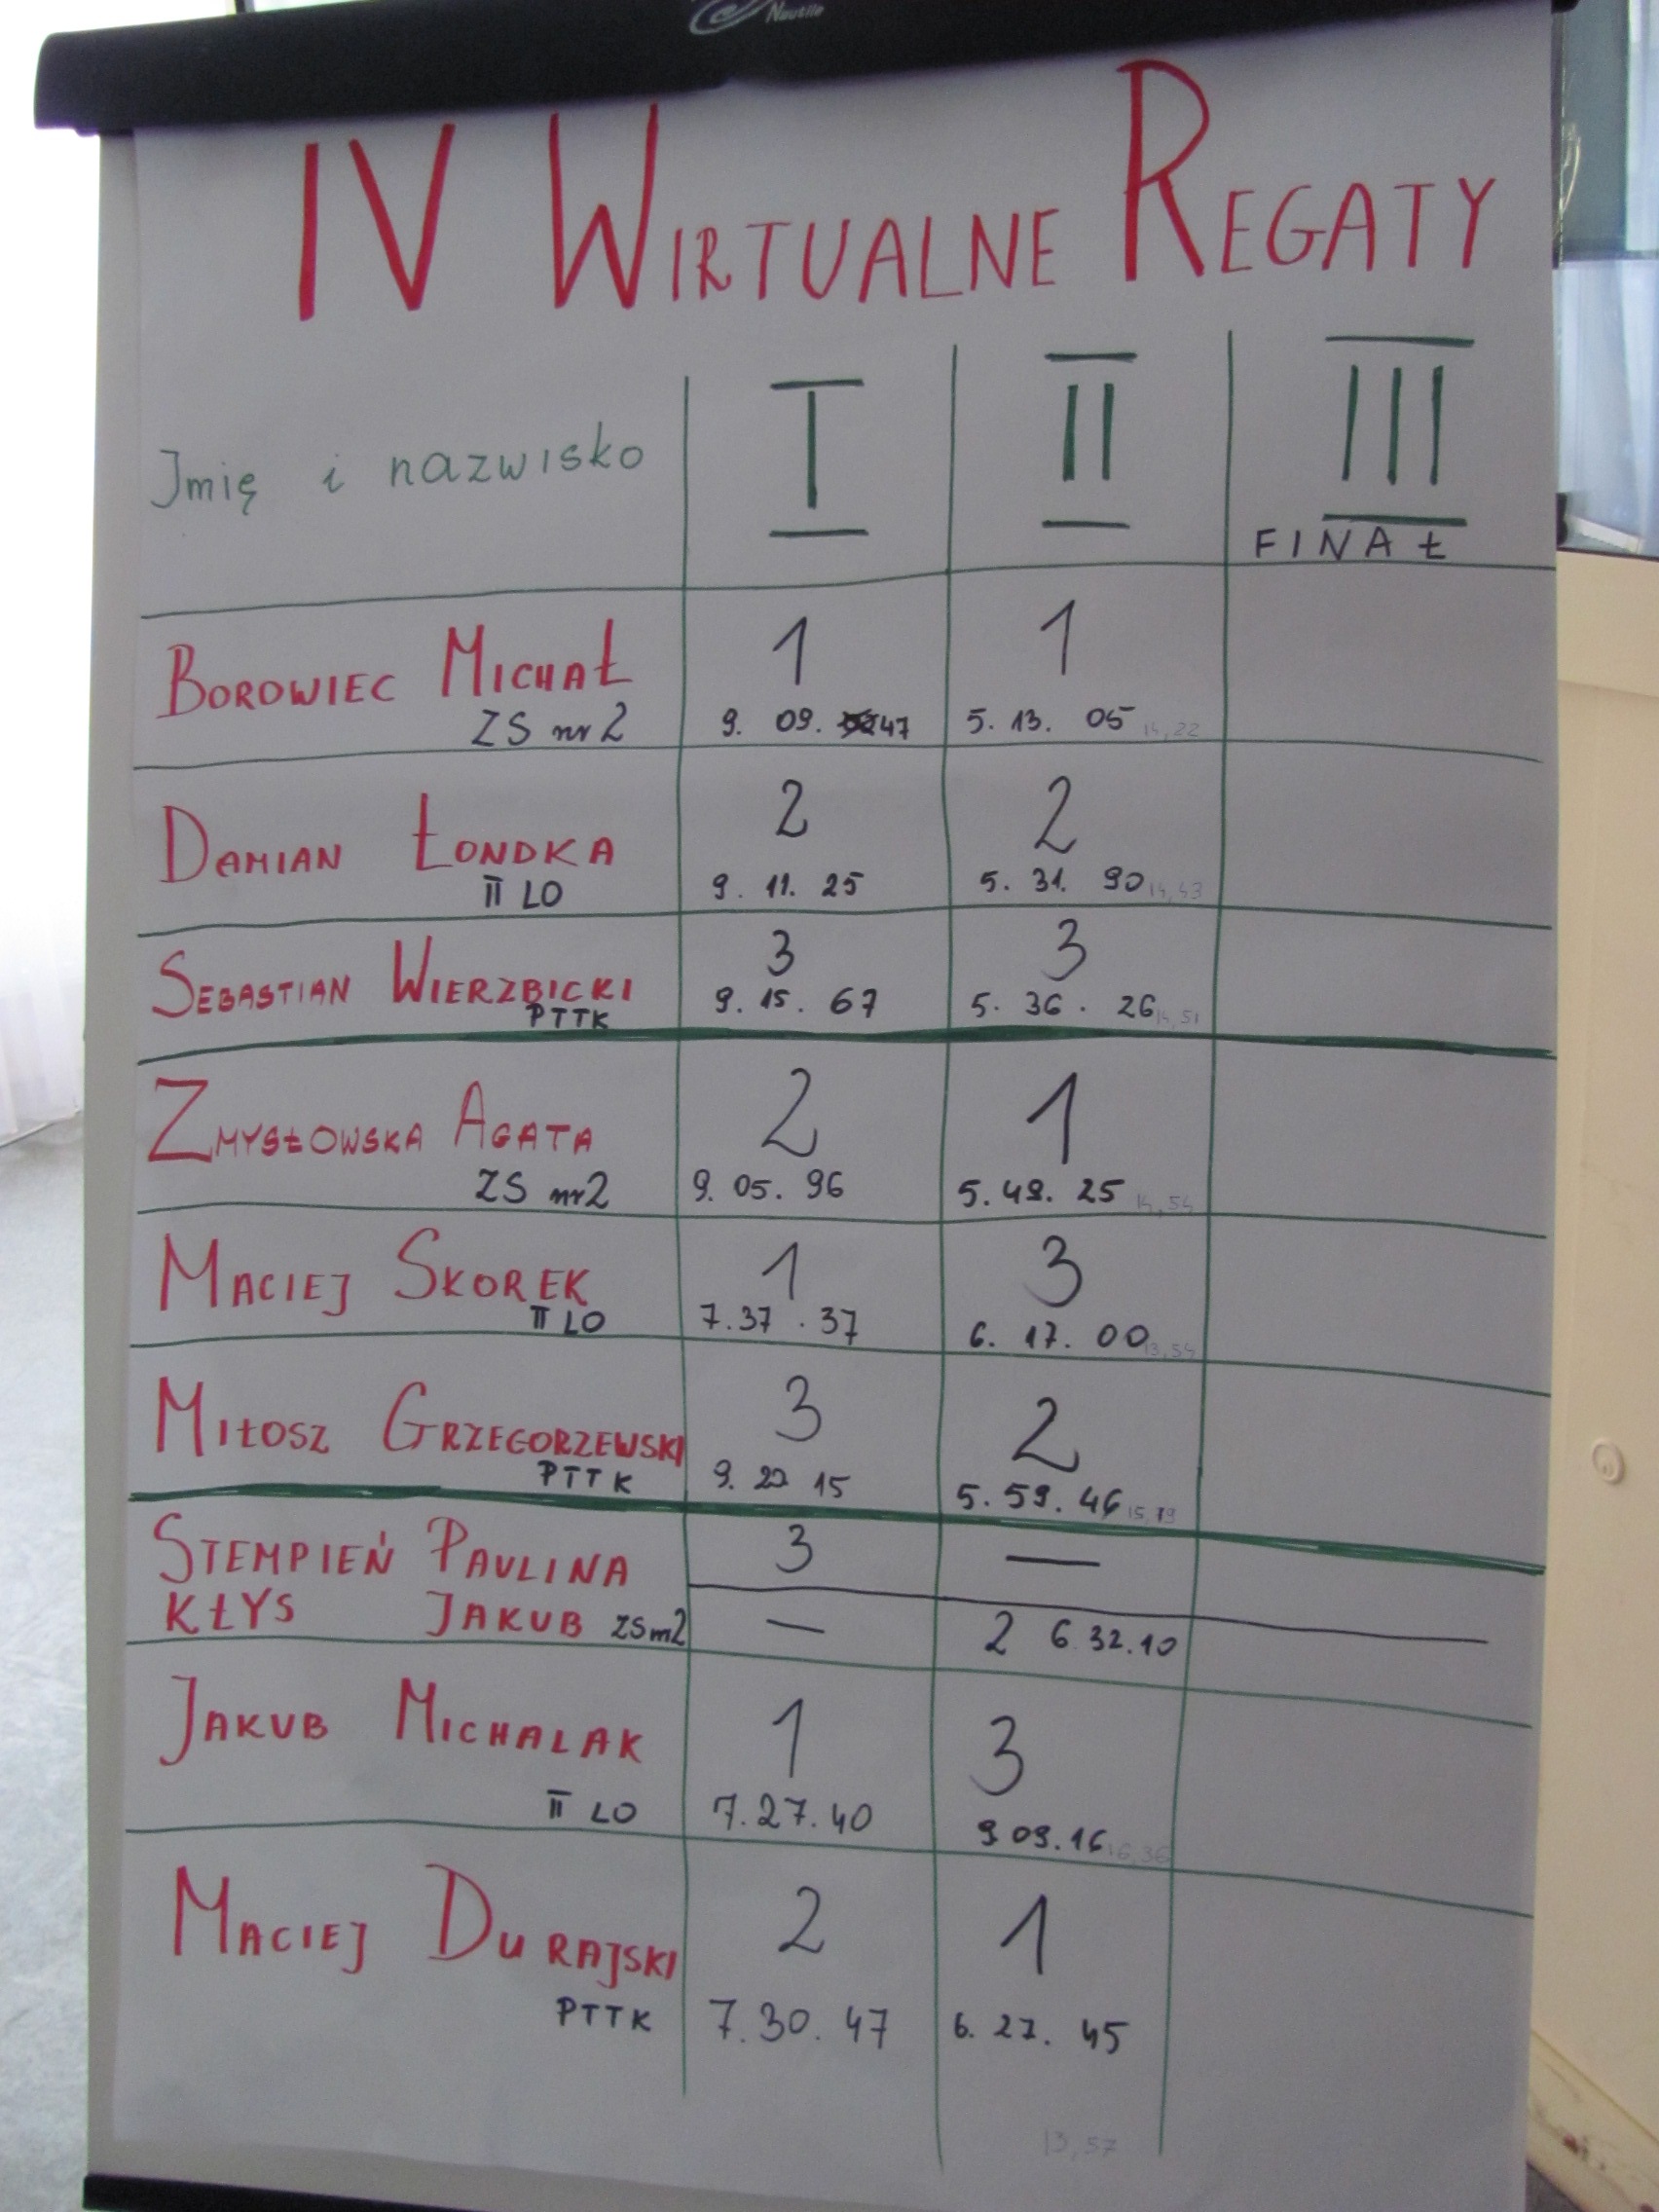 Nautilo
IV WIRTUALNE REGATY
Jmię i nazwisko I II III
FINAŁ
BOROWIEC MICHAŁ 1 1
ZS nr 2 9. 09. 47 5. 13. 05 14,22
DAMIAN ŁONDKA 2 2
II LO 9. 11. 25 5. 31. 90 14,43
SEBASTIAN WIERZBICKI 3 3
PTTK 9. 15. 67 5. 36. 26 14,51
ZMYSŁOWSKA AGATA 2 1
ZS nr 2 9. 05. 96 5. 49. 25 14,54
MACIEJ SKOREK 1 3
II LO 7. 37. 37 6. 17. 00 13,54
MIŁOSZ GRZEGORZEWSKI 3 2
PTTK 9. 22 15 5. 59. 46 15,19
STEMPIEŃ PAULINA 3 —
KŁYS JAKUB ZS nr 2 — 2 6.32.10
JAKUB MICHALAK 1 3
II LO 7.27.40 9 09.16 16,36
MACIEJ DURAJSKI 2 1
PTTK 7.30. 47 6. 27. 45
13,57